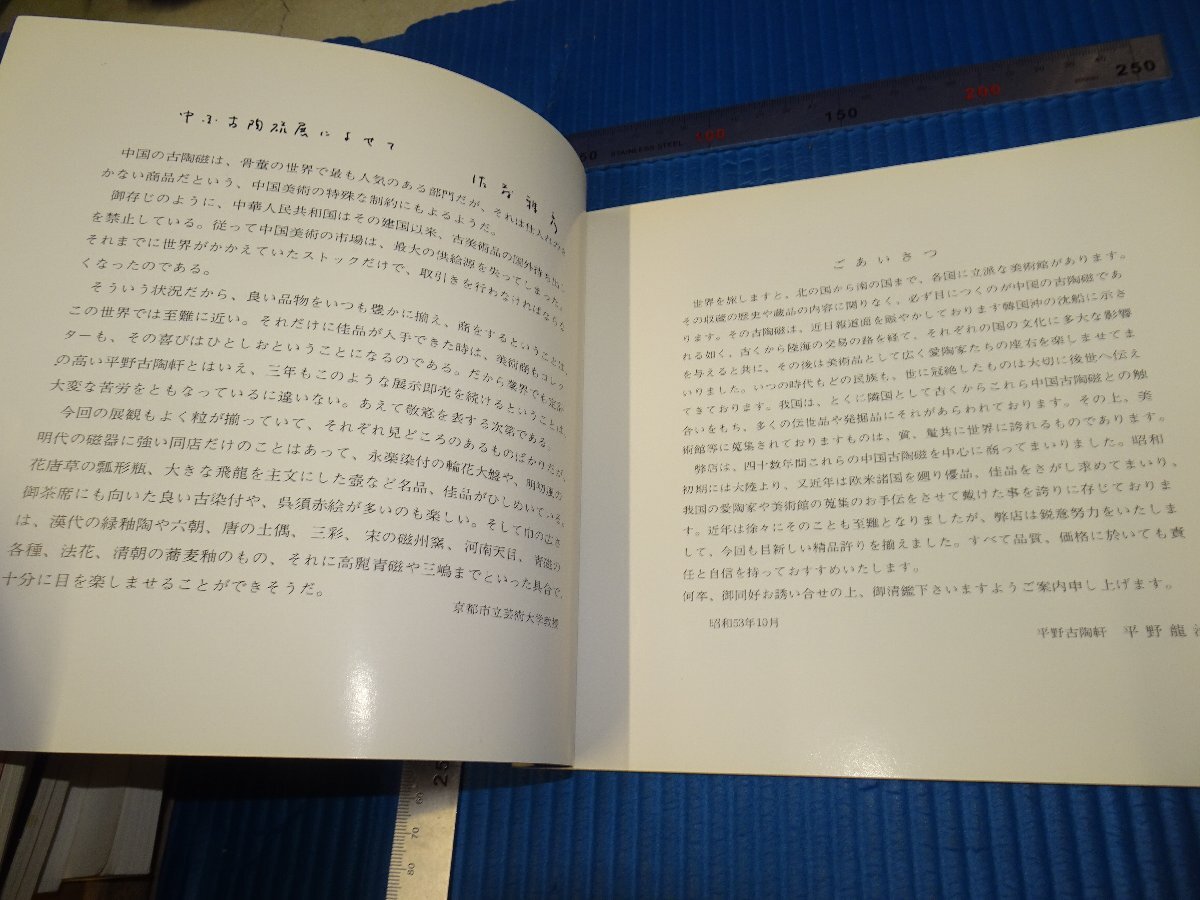 中国古陶磁展によせて
佐藤雅彦
中国の古陶磁は、骨董の世界で最も人気のある部門だが、それは仕入れのき
かない商品だという、中国美術の特殊な制約にもよるようだ。
御存じのように、中華人民共和国はその建国以来、古美術品の国外持ち出し
を禁止している。従って中国美術の市場は、最大の供給源を失ってしまった。
それまでに世界がかかえていたストックだけで、取引きを行わなければならな
くなったのである。
そういう状況だから、良い品物をいつも豊かに揃え、商をするということは、
この世界では至難に近い。それだけに佳品が入手できた時は、美術商もコレク
ターも、その喜びはひとしおということになるのである。だから業界でも定評
の高い平野古陶軒とはいえ、三年もこのような展示即売を続けるということは、
大変な苦労をともなっているに違いない。あえて敬意を表する次第である。
今回の展観もよく粒が揃っていて、それぞれ見どころのあるものばかりだが、
明代の磁器に強い同店だけのことはあって、永楽染付の輪花大盤や、明初連の
花唐草の瓢形瓶、大きな飛龍を主文にした壺など名品、佳品がひしめいている。
御茶席にも向いた良い古染付や、呉須赤絵が多いのも楽しい。そして巾の広さ
は、漢代の緑釉陶や六朝、唐の土偶、三彩、宋の磁州窯、河南天目、青磁の
各種、法花、清朝の蕎麦釉のもの、それに高麗青磁や三嶋までといった具合で、
十分に目を楽しませることができそうだ。
京都市立芸術大学教授
ごあいさつ
世界を旅しますと、北の国から南の国まで、各国に立派な美術館があります。
その収蔵の歴史や蔵品の内容に関りなく、必ず目につくのが中国の古陶磁であ
ります。その古陶磁は、近日報道面を賑やかしております韓国沖の沈船に示さ
れる如く、古くから陸海の交易の路を経て、それぞれの国の文化に多大な影響
を与えると共に、その後は美術品として広く愛陶家たちの座右を楽しませてま
いりました。いつの時代もどの民族も、世に冠絶したものは大切に後世へ伝え
てきております。我国は、とくに隣国として古くからこれら中国古陶磁との触
合いをもち、多くの伝世品や発掘品にそれがあらわれております。その上、美
術館等に蒐集されておりますものは、質、量共に世界に誇れるものであります。
弊店は、四十数年間これらの中国古陶磁を中心に商ってまいりました。昭和
初期には大陸より、又近年は欧米諸国を廻り優品、佳品をさがし求めてまいり、
我国の愛陶家や美術館の蒐集のお手伝をさせて戴けた事を誇りに存じておりま
す。近年は徐々にそのことも至難となりましたが、弊店は鋭意努力をいたしま
して、今回も目新しい精品許りを揃えました。すべて品質、価格に於いても責
任と自信を持っておすすめいたします。
何卒、御同好お誘い合せの上、御清鑑下さいますようご案内申し上げます。
昭和53年10月
平野古陶軒 平野龍
STAINLESS STEEL
100
150
200
250
60
70
80